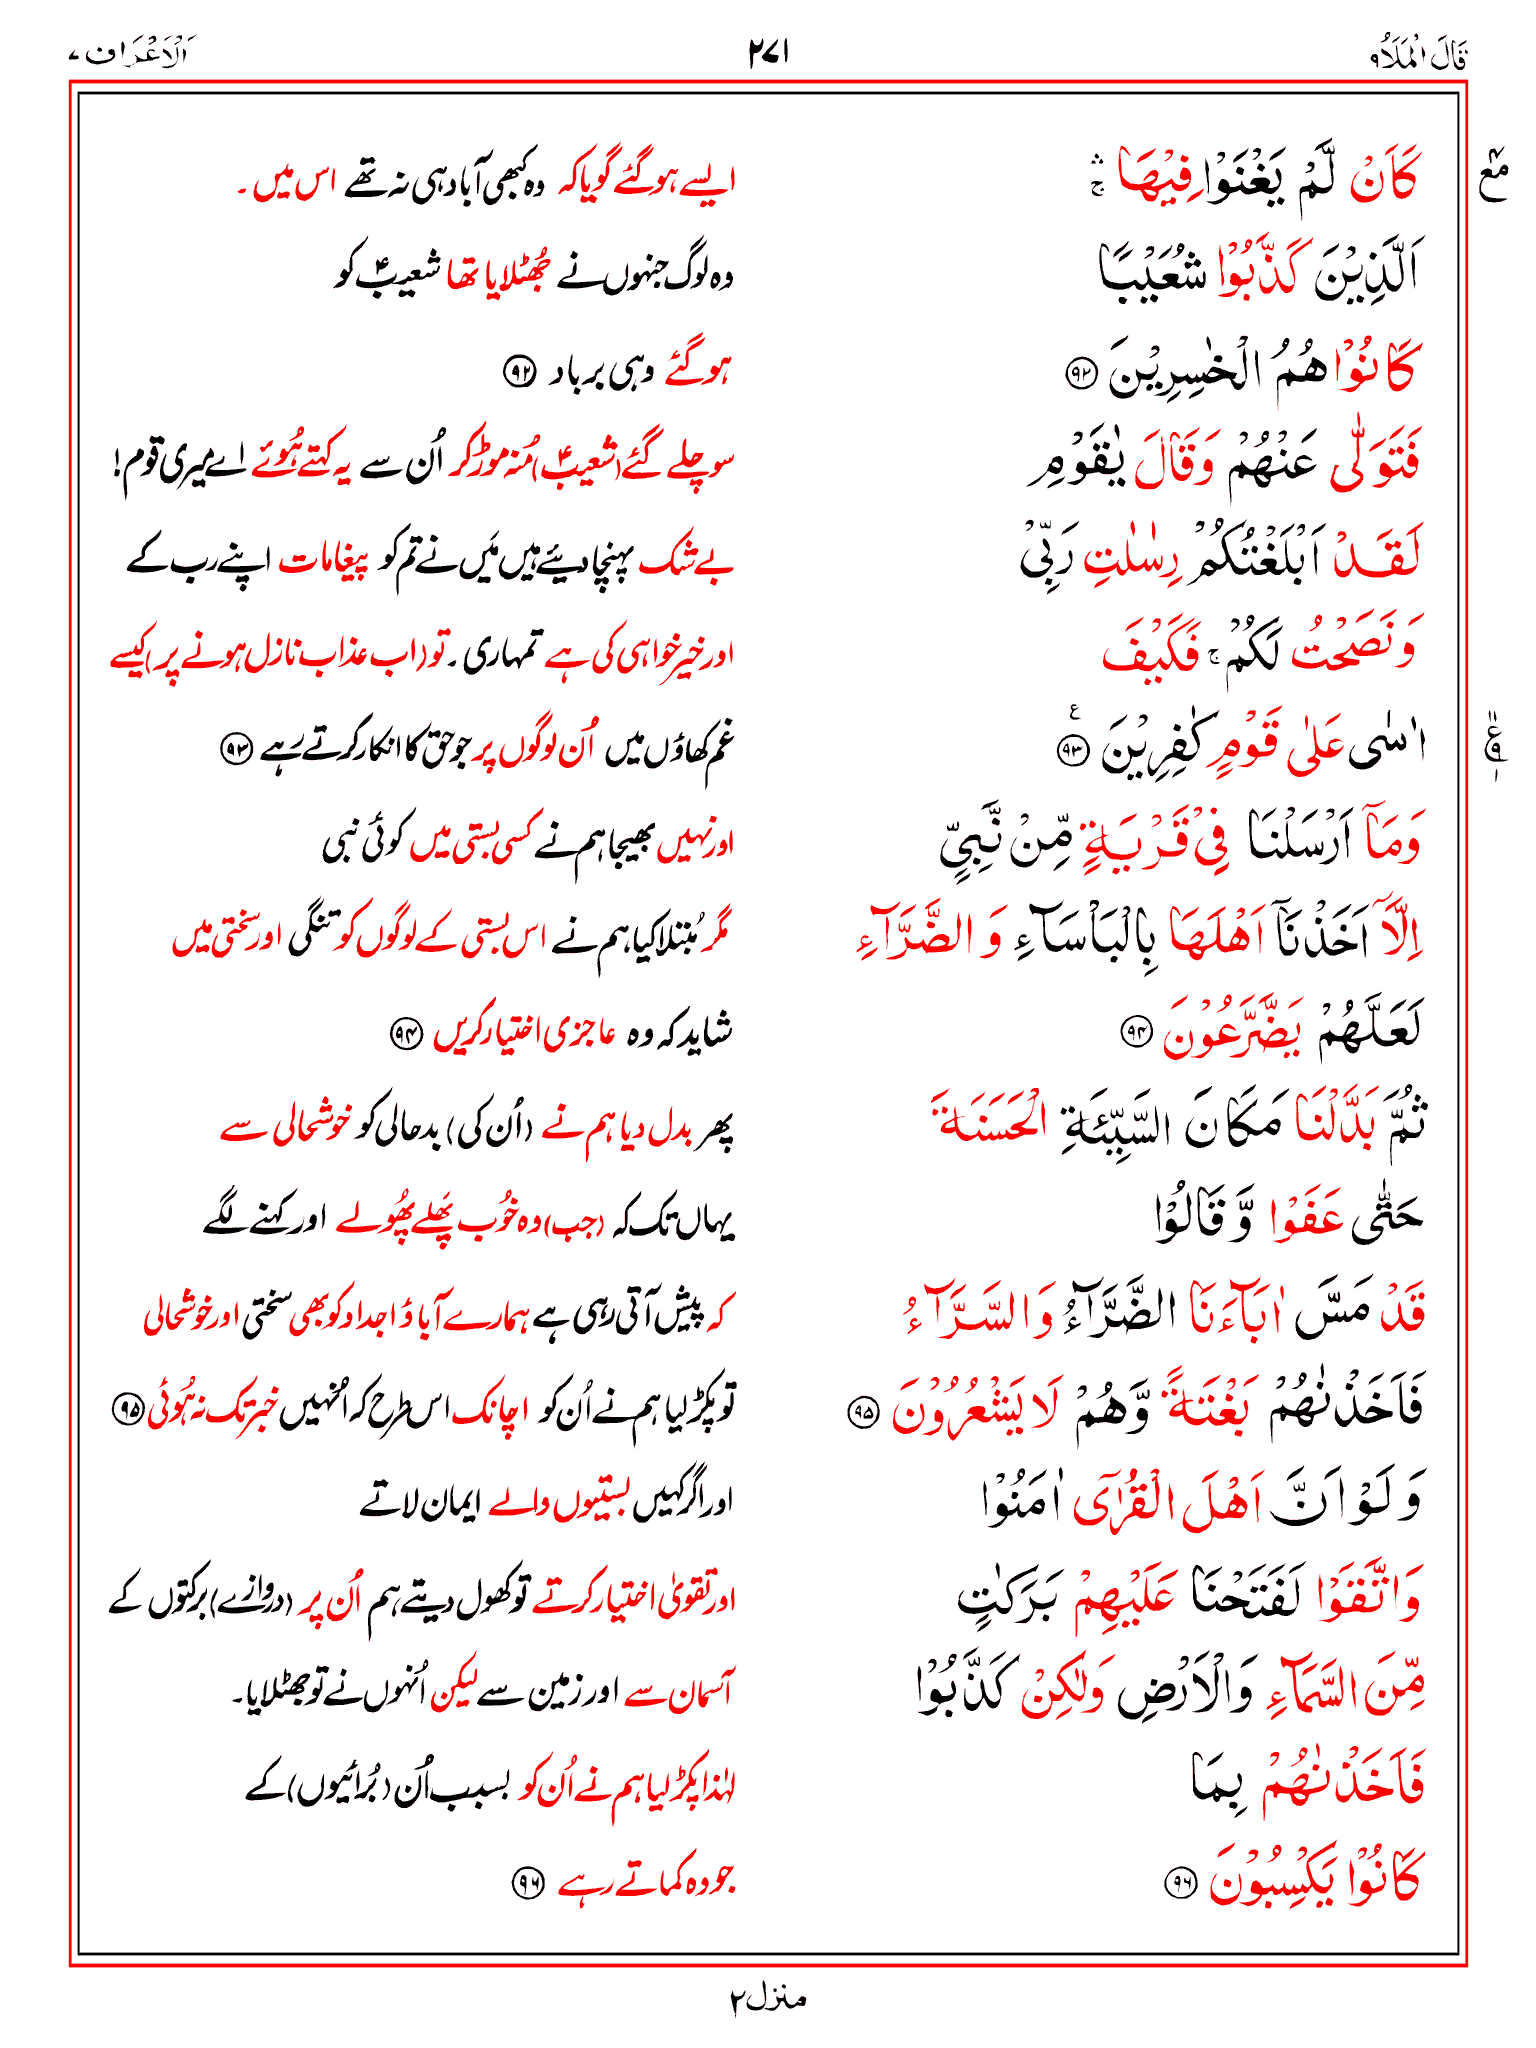 قَالَ الْمَلَاُ ۹ ۲۷۱ اَلْاَعْرَاف ۷
كَاَنْ لَّمْ يَغْنَوْا فِيْهَا ۛۚ ایسے ہو گئے گویا کہ وہ کبھی آباد ہی نہ تھے اس میں ۔
مع
اَلَّذِيْنَ كَذَّبُوْا شُعَيْبًا وہ لوگ جنہوں نے جُھٹلایا تھا شعیبؑ کو
كَانُوْا هُمُ الْخٰسِرِيْنَ ۹۲ ہو گئے وہی برباد ۹۲
فَتَوَلّٰى عَنْهُمْ وَقَالَ يٰقَوْمِ سو چلے گئے (شعیبؑ) مُنہ موڑ کر اُن سے یہ کہتے ہُوئے اے میری قوم!
لَقَدْ اَبْلَغْتُكُمْ رِسٰلٰتِ رَبِّيْ بے شک پہنچا دیئے ہیں مَیں نے تم کو پیغامات اپنے رب کے
وَنَصَحْتُ لَكُمْ ۚ فَكَيْفَ اور خیر خواہی کی ہے تمہاری ۔ تو (اب عذاب نازل ہونے پر) کیسے
اٰسٰى عَلٰى قَوْمٍ كٰفِرِيْنَ ۹۳ ع غم کھاؤں میں اُن لوگوں پر جو حق کا انکار کرتے رَہے ۹۳
ع ۹ ۱
وَمَآ اَرْسَلْنَا فِيْ قَرْيَةٍ مِّنْ نَّبِيٍّ اور نہیں بھیجا ہم نے کسی بستی میں کوئی نبی
اِلَّآ اَخَذْنَآ اَهْلَهَا بِالْبَاْسَآءِ وَالضَّرَّآءِ مگر مُبتلا کیا ہم نے اس بستی کے لوگوں کو تنگی اور سختی میں
لَعَلَّهُمْ يَضَّرَّعُوْنَ ۹۴ شاید کہ وہ عاجزی اختیار کریں ۹۴
ثُمَّ بَدَّلْنَا مَكَانَ السَّيِّئَةِ الْحَسَنَةَ پھر بدل دیا ہم نے (اُن کی) بدحالی کو خوشحالی سے
حَتّٰى عَفَوْا وَّقَالُوْا یہاں تک کہ (جب) وہ خُوب پَھلے پُھولے اور کہنے لگے
قَدْ مَسَّ اٰبَآءَنَا الضَّرَّآءُ وَالسَّرَّآءُ کہ پیش آتی رہی ہے ہمارے آباؤ اجداد کو بھی سختی اور خوشحالی
فَاَخَذْنٰهُمْ بَغْتَةً وَّهُمْ لَا يَشْعُرُوْنَ ۹۵ تو پکڑ لیا ہم نے اُن کو اچانک اس طرح کہ اُنہیں خبر تک نہ ہُوئی ۹۵
وَلَوْ اَنَّ اَهْلَ الْقُرٰٓى اٰمَنُوْا اور اگر کہیں بستیوں والے ایمان لاتے
وَاتَّقَوْا لَفَتَحْنَا عَلَيْهِمْ بَرَكٰتٍ اور تقویٰ اختیار کرتے تو کھول دیتے ہم اُن پر (دروازے) برکتوں کے
مِّنَ السَّمَآءِ وَالْاَرْضِ وَلٰكِنْ كَذَّبُوْا آسمان سے اور زمین سے لیکن اُنہوں نے تو جھٹلایا۔
فَاَخَذْنٰهُمْ بِمَا لہٰذا پکڑ لیا ہم نے اُن کو بسبب اُن (بُرائیوں) کے
كَانُوْا يَكْسِبُوْنَ ۹۶ جو وہ کماتے رہے ۹۶
منزل ۲